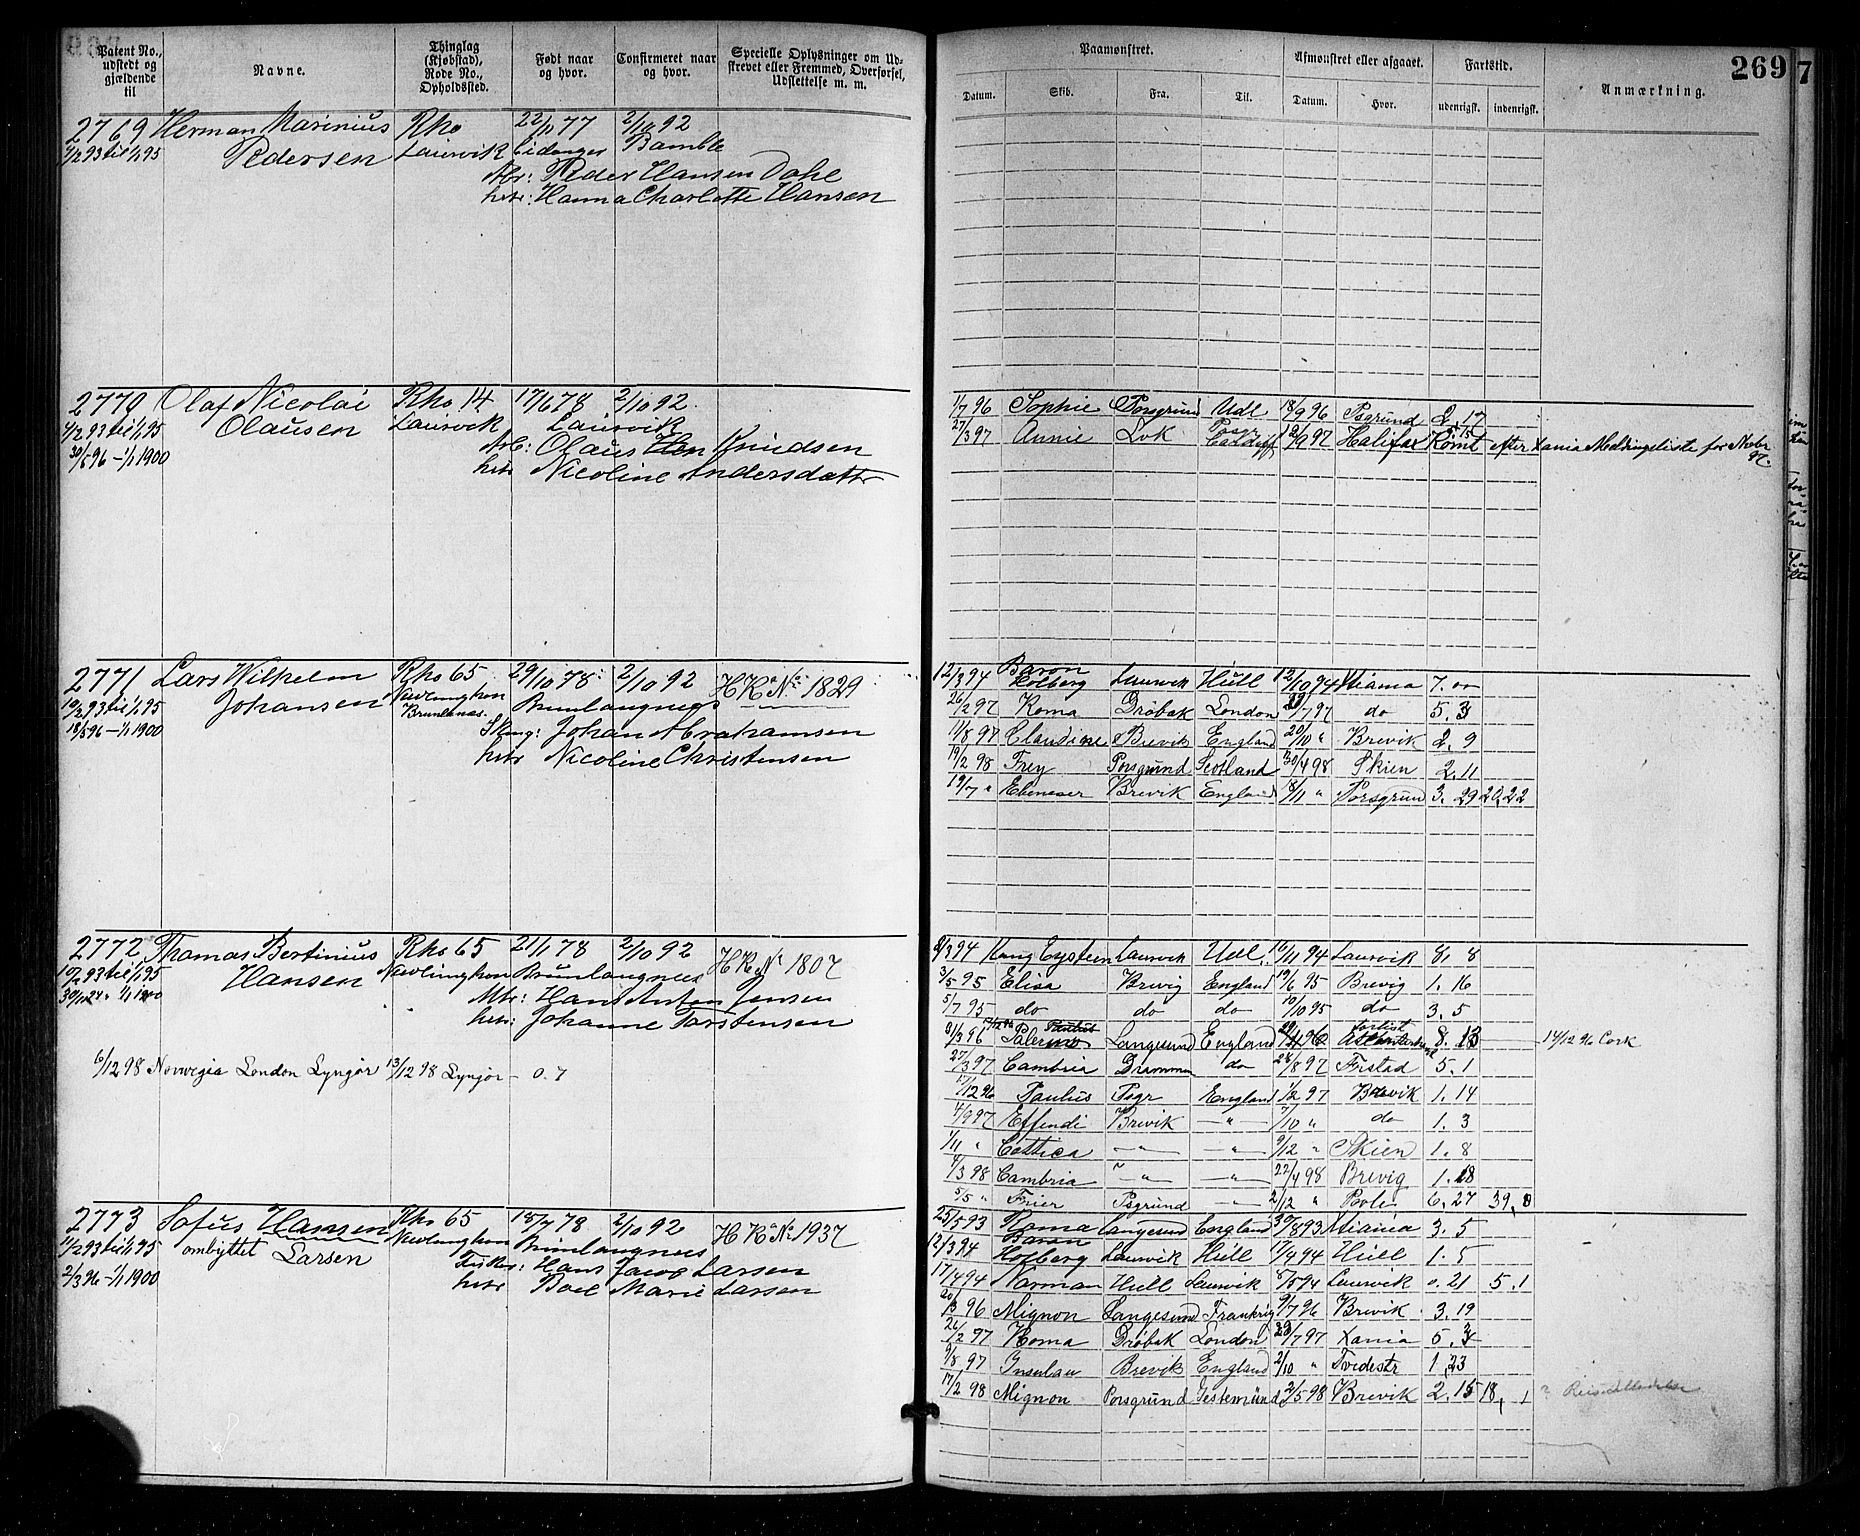 Patent No., udstedt og gjældende til
Navne.
Thinglag (Kjøbstad), Rode No., Opholdssted.
Født naar og hvor.
Confirmeret naar og hvor.
Specielle Oplysninger om Udskrevet eller Fremmed, Overførsel, Udslettelse m. m.
Paamønstret.
Afmønstret eller afgaaet.
Fartstid.
Anmærkning.
269
7
Datum.
Skib.
Fra.
Til.
Datum.
Hvor.
udenrigsk.
indenrigsk.
2769 Herman Marinius Rho 22/11 77 2/10 92
93 til 1/1 95 Pedersen Laurvik Eidanger Bamble
Peder Hansen Dahl
Hanna Charlotte Hansen
2770 Olaf Nicolai Rho 14 17/6 78 2/10 92
4/2 93 til 1/1 95 Olausen Laurvik Laurvik
30/5 96 - 1/1 1900 Arb: Olaus Knudsen
hstr Nicoline Andersdatter
1/7 96 Sophie Porsgrund Udl 18/9 96 Psgrund 2.17
27/3 97 Annie Lvk Cardiff 12/9 97 Halifax Rømt efter Xania Meldingsliste for Novbr 97.
2771 Lars Wilhelm Rho 65 29/10 78 2/10 92 HK No 1829
10/2 93 til 1/1 95 Johansen Nævlunghvn Brunlangnes
18/3 96 - 1/1 1900 Brunlanæs. Johan Abrahamsen
hstr Nicoline Christensen
12/3 94 Baron Holberg Laurvik Hull 12/10 94 Miania 7.00
26/2 97 Roma Drøbak London 29/7 97 do 5.3
11/8 97 Claudine Brevik England 20/10 " Brevik 2.9
19/2 98 Frey Porsgrund Scotland 30/4 98 Skien 2.11
19/7 " Ebeneser Brevik England 8/11 " Porsgrund 3.29 20,22
2772 Thomas Bertinius Rho 65 21/1 78 2/10 92 HK No 1807
10/2 93 til 1/1 95 Hansen Nævlunghvn Brunlangnes
Mtr: Hans Anton Jensen
hstr: Johanne Torstensen
6/12 98 Norwegia London Lyngør 13/12 98 Lyngør - 0.7
8/3 94 Kong Eystein Laurvik Udl. 16/11 94 Laurvik 8, 8
3/5 95 Elisa Brevig England 19/6 95 Brevig 1.16
5/7 95 do do do 10/10 95 do 3.5
9/3 96 Palermo Langesund England 8.13 14/12 96 Cork
27/3 97 Cambria Drammen do 28/8 97 Frstad 5.1
17/12 96 Paulus Psgr England 1/2 97 Brevik 1.14
4/9 97 Effendi Brevik — " — 7/10 " do 1.3
1/11 " Cottica — " — — " — 9/12 " Skien 1.8
4/3 98 Cambria " — " — 22/4 98 Brevig 1.18
5/5 " Freier Psgrund — " — 2/12 " 6.27 39,8
2773 Sofus Hansen Rho 65 18/7 78 2/10 92 HK No 1937
11/2 93 til 1/1 95 ombyttet Larsen Nævlunghvn Brunlangnes
2/3 96 - 1/1 1900 Fisker: Hans Jacob Larsen
hstr Boel Marie Larsen
25/5 93 Roma Langesund England 30/8 93 Miania 3.5
12/3 94 Baron Holberg Laurvik Hull 17/4 94 Hull 1.5
17/4 94 Norman Hull Laurvik 8/5 94 Laurvik 0.21 5.1
20/3 96 Mignon Langesund Frankrig 9/7 96 Brevik 3.19
26/2 97 Roma Drøbak London 29/7 97 Xania 5.3
9/8 97 Insulan Brevik England 2/10 " Tvedestr 1.23
17/2 98 Mignon Porsgrund Gestemünde 2/5 98 Brevik 2.15 18,1